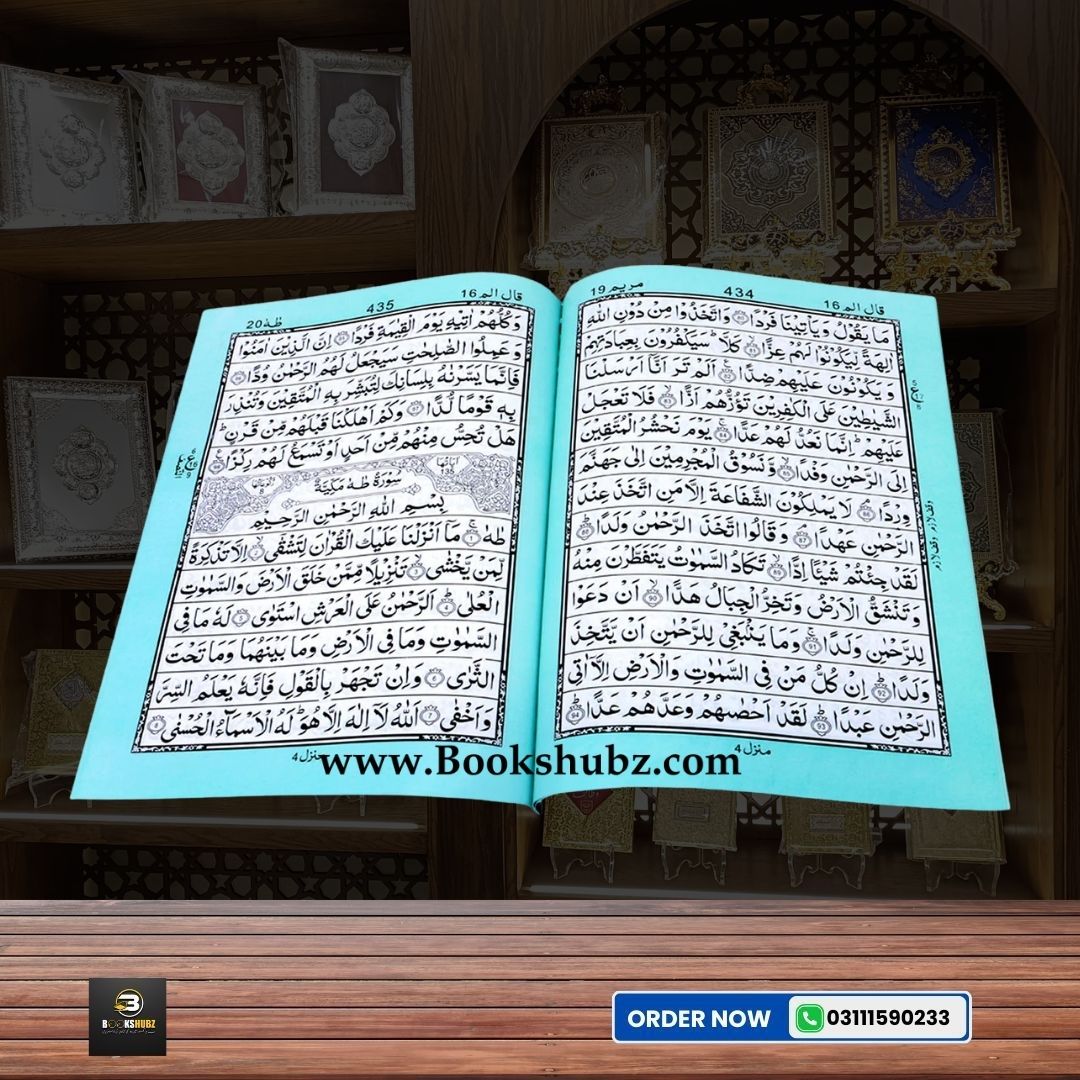 قال الم 16
434
مريم 19
مَا يَقُوْلُ وَيَاْتِيْنَا فَرْدًا ﴿80﴾ وَاتَّخَذُوْا مِنْ دُوْنِ اللّٰهِ
اٰلِهَةً لِّيَكُوْنُوْا لَهُمْ عِزًّا ﴿81﴾ كَلَّا سَيَكْفُرُوْنَ بِعِبَادَتِهِمْ
وَيَكُوْنُوْنَ عَلَيْهِمْ ضِدًّا ﴿82﴾ اَلَمْ تَرَ اَنَّا اَرْسَلْنَا
الشَّيٰطِيْنَ عَلَى الْكٰفِرِيْنَ تَؤُزُّهُمْ اَزًّا ﴿83﴾ فَلَا تَعْجَلْ
عَلَيْهِمْ اِنَّمَا نَعُدُّ لَهُمْ عَدًّا ﴿84﴾ يَوْمَ نَحْشُرُ الْمُتَّقِيْنَ
اِلَى الرَّحْمٰنِ وَفْدًا ﴿85﴾ وَّنَسُوْقُ الْمُجْرِمِيْنَ اِلٰى جَهَنَّمَ
وِرْدًا ﴿86﴾ لَا يَمْلِكُوْنَ الشَّفَاعَةَ اِلَّا مَنِ اتَّخَذَ عِنْدَ
الرَّحْمٰنِ عَهْدًا ﴿87﴾ وَقَالُوا اتَّخَذَ الرَّحْمٰنُ وَلَدًا ﴿88﴾
لَقَدْ جِئْتُمْ شَيْـًٔا اِدًّا ﴿89﴾ تَكَادُ السَّمٰوٰتُ يَتَفَطَّرْنَ مِنْهُ
وَتَنْشَقُّ الْاَرْضُ وَتَخِرُّ الْجِبَالُ هَدًّا ﴿90﴾ اَنْ دَعَوْا
لِلرَّحْمٰنِ وَلَدًا ﴿91﴾ وَمَا يَنْۢبَغِيْ لِلرَّحْمٰنِ اَنْ يَّتَّخِذَ
وَلَدًا ﴿92﴾ اِنْ كُلُّ مَنْ فِي السَّمٰوٰتِ وَالْاَرْضِ اِلَّاۤ اٰتِى
الرَّحْمٰنِ عَبْدًا ﴿93﴾ لَقَدْ اَحْصٰىهُمْ وَعَدَّهُمْ عَدًّا ﴿94﴾
منزل 4
وقف لازم وقف لازم
قال الم 16
435
طٰهٰ 20
وَكُلُّهُمْ اٰتِيْهِ يَوْمَ الْقِيٰمَةِ فَرْدًا ﴿95﴾ اِنَّ الَّذِيْنَ اٰمَنُوْا
وَعَمِلُوا الصّٰلِحٰتِ سَيَجْعَلُ لَهُمُ الرَّحْمٰنُ وُدًّا ﴿96﴾
فَاِنَّمَا يَسَّرْنٰهُ بِلِسَانِكَ لِتُبَشِّرَ بِهِ الْمُتَّقِيْنَ وَتُنْذِرَ
بِهٖ قَوْمًا لُّدًّا ﴿97﴾ وَكَمْ اَهْلَكْنَا قَبْلَهُمْ مِّنْ قَرْنٍ
هَلْ تُحِسُّ مِنْهُمْ مِّنْ اَحَدٍ اَوْ تَسْمَعُ لَهُمْ رِكْزًا ﴿98﴾
اٰيَاتُهَا 135
سُوْرَةُ طٰهٰ مَكِّيَّةٌ
رُكُوْعَاتُهَا 8
بِسْمِ اللّٰهِ الرَّحْمٰنِ الرَّحِيْمِ
طٰهٰ ﴿1﴾ مَاۤ اَنْزَلْنَا عَلَيْكَ الْقُرْاٰنَ لِتَشْقٰٓى ﴿2﴾ اِلَّا تَذْكِرَةً
لِّمَنْ يَّخْشٰى ﴿3﴾ تَنْزِيْلًا مِّمَّنْ خَلَقَ الْاَرْضَ وَالسَّمٰوٰتِ
الْعُلٰى ﴿4﴾ اَلرَّحْمٰنُ عَلَى الْعَرْشِ اسْتَوٰى ﴿5﴾ لَهٗ مَا فِي
السَّمٰوٰتِ وَمَا فِي الْاَرْضِ وَمَا بَيْنَهُمَا وَمَا تَحْتَ
الثَّرٰى ﴿6﴾ وَاِنْ تَجْهَرْ بِالْقَوْلِ فَاِنَّهٗ يَعْلَمُ السِّرَّ
وَاَخْفٰى ﴿7﴾ اَللّٰهُ لَاۤ اِلٰهَ اِلَّا هُوَ لَهُ الْاَسْمَآءُ الْحُسْنٰى ﴿8﴾
منزل 4
www.Bookshubz.com
BOOKSHUBZ
ORDER NOW
03111590233